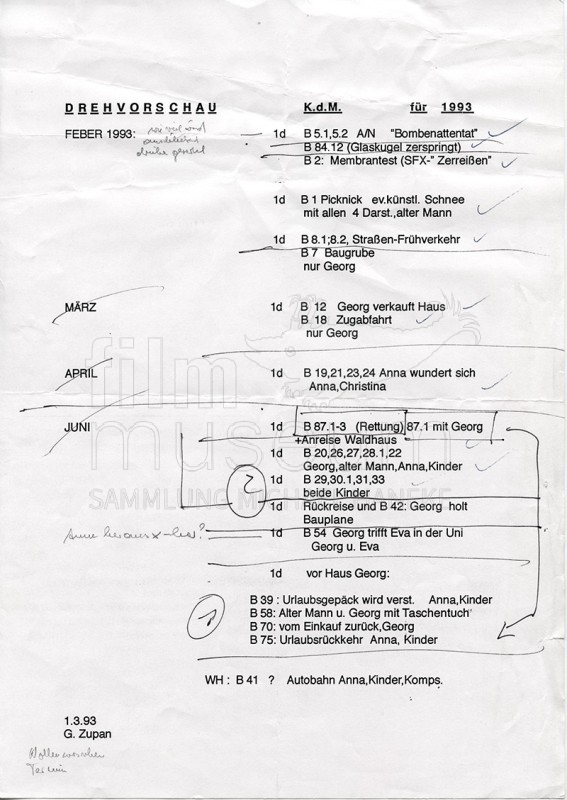 DREHVORSCHAU K.d.M. für 1993
FEBER 1993: 1d B 5.1,5.2 A/N "Bombenattentat"
B 84.12 (Glaskugel zerspringt)
B 2: Membrantest (SFX-" Zerreißen"
1d B 1 Picknick ev.künstl. Schnee
mit allen 4 Darst.,alter Mann
1d B 8.1;8.2, Straßen-Frühverkehr
B 7 Baugrube
nur Georg
MÄRZ 1d B 12 Georg verkauft Haus
B 18 Zugabfahrt
nur Georg
APRIL 1d B 19,21,23,24 Anna wundert sich
Anna,Christina
JUNI 1d B 87.1-3 (Rettung) 87.1 mit Georg
+Anreise Waldhaus
1d B 20,26,27,28.1,22
Georg,alter Mann,Anna,Kinder
1d B 29,30.1,31,33
beide Kinder
2
1d Rückreise und B 42: Georg holt
Bauplane
1d B 54 Georg trifft Eva in der Uni
Georg u. Eva
1d vor Haus Georg:
B 39 : Urlaubsgepäck wird verst. Anna,Kinder
B 58: Alter Mann u. Georg mit Taschentuch
B 70: vom Einkauf zurück,Georg
B 75: Urlaubsrückkehr Anna, Kinder
1
WH : B 41 ? Autobahn Anna,Kinder,Komps.
1.3.93
G. Zupan
Termin
film
museum
SAMMLUNG MICHAEL HANEKE